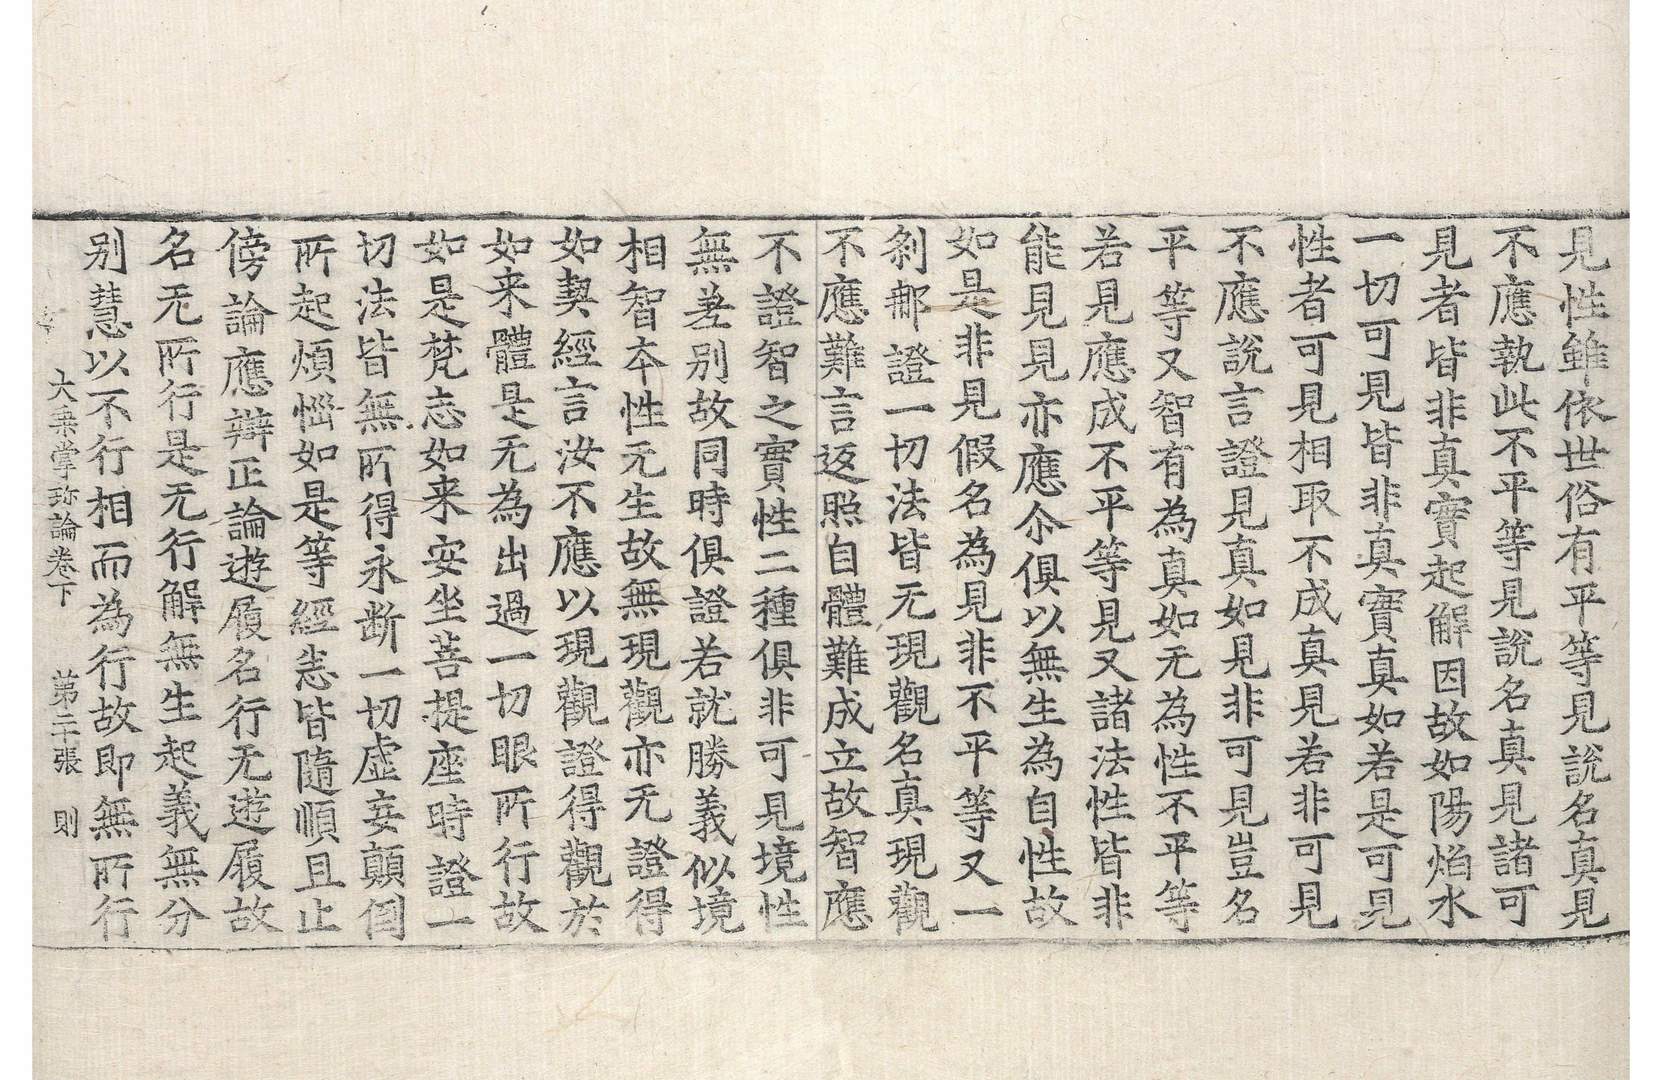 見性雖依世俗有平等見說名真見
不應執此不平等見說名真見諸可
見者皆非真實起解因故如陽焰水
一切可見皆非真實真如若是可見
性者可見相取不成真見若非可見
不應說言證見真如見非可見豈名
平等又智有為真如无為性不平等
若見應成不平等見又諸法性皆非
能見見亦應尒俱以無生為自性故
如是非見假名為見非不平等又一
剎那證一切法皆无現觀名真現觀
不應難言返照自體難成立故智應
不證智之實性二種俱非可見境性
無差別故同時俱證若就勝義似境
相智本性无生故無現觀亦无證得
如契經言汝不應以現觀證得觀於
如来如来體是无為出過一切眼所行故
如是梵志如来安坐菩提座時證一
切法皆無所得永断一切虛妄顛倒
所起煩惱如是等經恙皆隨順且止
傍論應辯正論遊履名行无遊履故
名无所行是无行解無生起義無分
別慧以不行相而為行故即無所行
大乘掌珎論卷下 第二十張 則